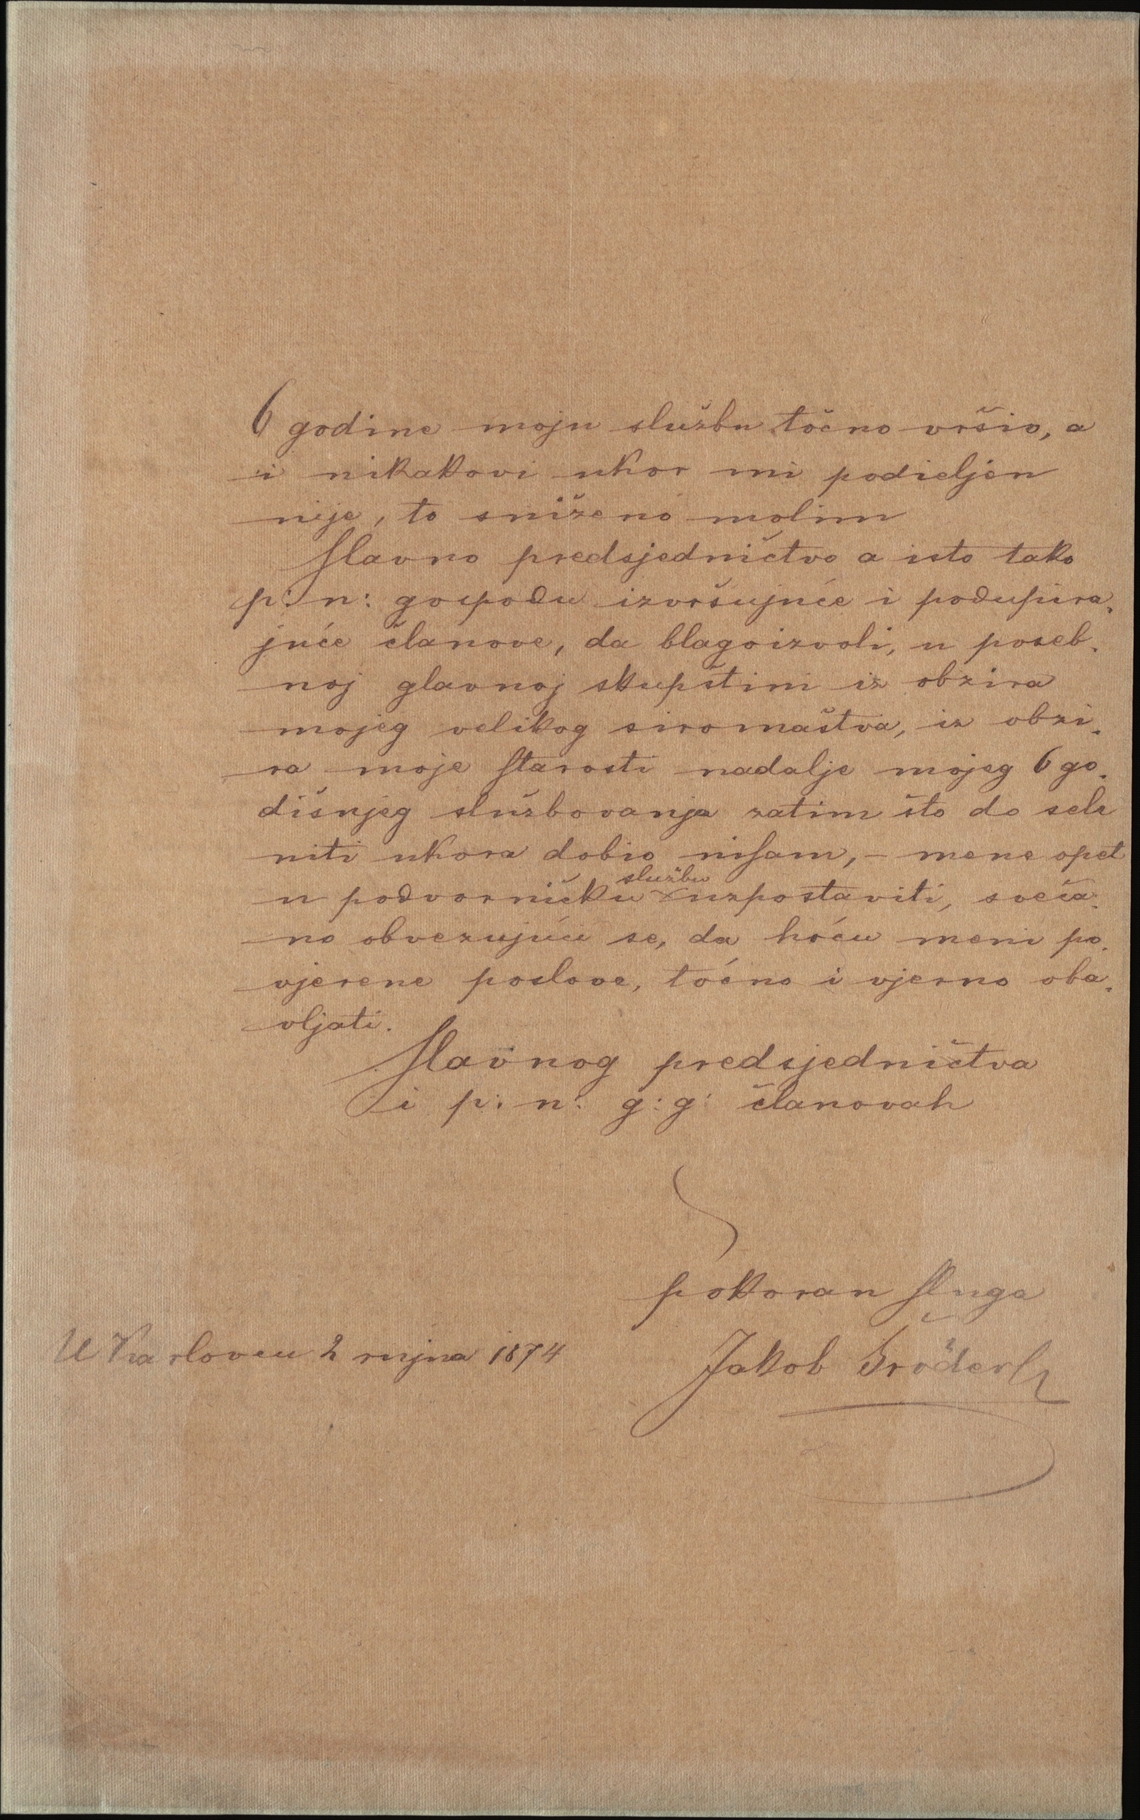 6 godine moju službu točno vršio, a
i nikakovi ukor mi podieljen
nije, to sniženo molim
Slavno predsjedničtvo a isto tako
p: n: gospodu izvršujuće i podupira-
juće članove, da blagoizvoli, u poseb-
noj glavnoj skupštini iz obzira
mojeg velikog siromaštva, iz obzi-
ra moje starosti nadalje mojeg 6 go-
dišnjeg službovanja zatim što do sele
niti ukora dobio nisam, – mene opet
u podvorničku službu uzpostaviti, sveča-
no obvezujuću se, da hoću meni po-
vjerene poslove, točno i vjerno oba-
vljati.
Slavnog predsjedničtva
i p: n: g: g: članovah
pokoran sluga
U Karlovcu 2 rujna 1874
Jakob